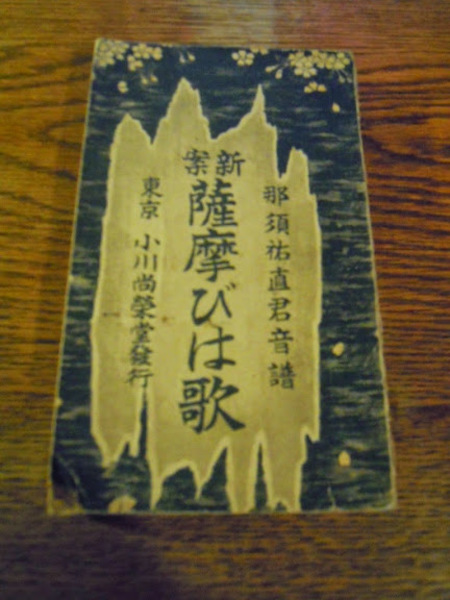 那須祐直君音譜
新案
薩摩びは歌
東京 小川尚榮堂發行